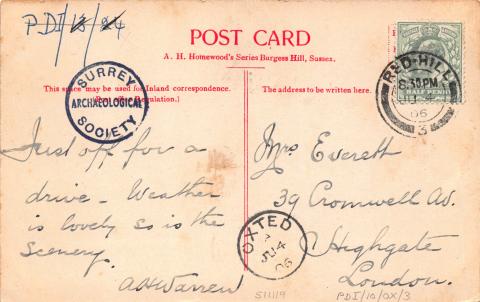 PDI/13/24
POST CARD
A. H. Homewood's Series Burgess Hill, Sussex.
This space may be used for Inland correspondence.
(Post Office Regulation.)
The address to be written here.
SURREY
ARCHAEOLOGICAL
SOCIETY
HALF PENNY
RED-HILL
8.30 PM
JU 4
06
3
Just off for a
drive - Weather
is lovely so is the
scenery.
A H Warren
Mrs Everett
39 Cromwell Av.
Highgate
London.
OXTED
JU 4
06
S11119
PDI/10/OX/3